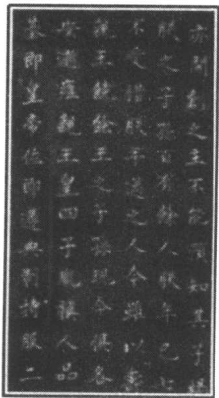 之主不能如其子
朕之子孫百有餘人朕年已七
不愛惜朕年邁之人今雖以壽
親王饒餘王之子孫現今俱各
安逝雍親王皇四子胤禛人品
基即皇帝位即遵典制持服二